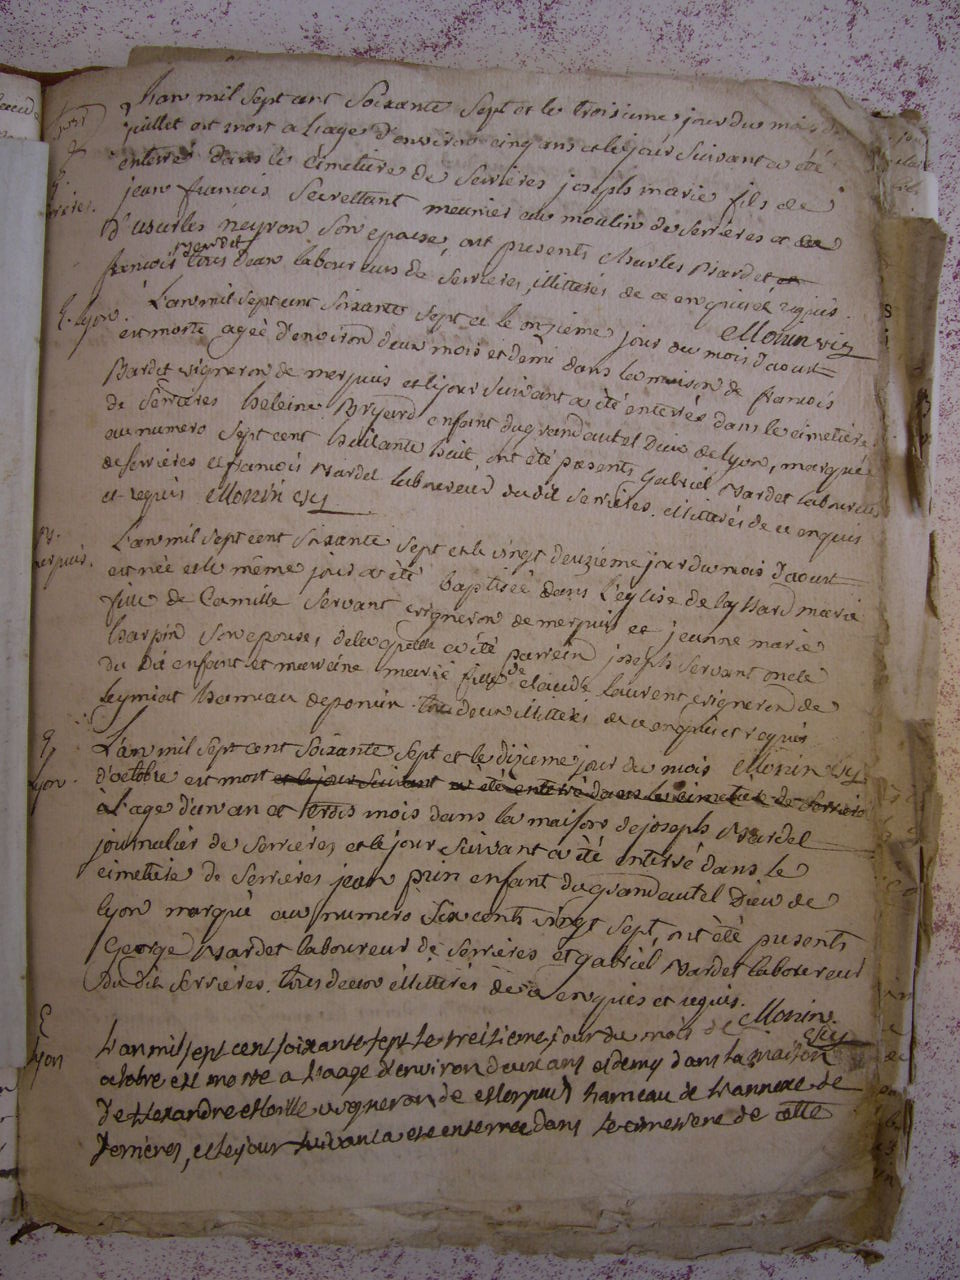 L'an mil sept cent soixante sept et le troisieme jour du mois de
juillet est mort a l'age d'environ cinq ans et le jour suivant a été
enterré dans le cimetiere de serrieres joseph marie fils de
jean francois Secrettant meunier au moulin de serrieres et de
d'usurles neyron son epouse, ont presents charles Nardet et
francois Nardet tous deux laboureurs de serrieres, illitterés de ce enquis et requis.
Monin vic
E. Lyon.
L'an mil sept cent soixante sept et le onzieme jour du mois d'aoust
est morte ageé d'environ deux mois et demi dans la maison de francois
Nardet vigneron de merpuis et le jour suivant a été enterreé dans le cimetiere
de serrieres heleine enfant du grand autel Dieu de lyon, marqué
au numero sept cent huitante huit, ont été presents Gabriel Nardet laboureur
de serrieres et francois Nardet laboureur dudit serrieres. illitterés de ce enquis
et requis Monin vic
B.
merpuis.
L'an mil sept cent soixante sept et le vingt deuzieme jour du mois d'aoust
est neé et le même jour a été baptiseé dans l'eglise de marie
fille de Camille Servant vigneron de merpuis et jeanne marie
harpin son epouse, de laquelle a été parrein joseph servant oncle
du dit enfant et marreine marie fille de claude laurent vigneron de
leymiat hameau de poncin tous deux illitterés de ce enquis et requis
Monin vic
E
Lyon.
L'an mil sept cent soixante sept et le dizieme jour du mois
d'octobre est mort et le jour suivant a été enterré dans le cimetiere de serrieres
à l'age d'un an et trois mois dans la maison de joseph Nardet
journalier de serrieres, et le jour suivant a été enterré dans le
cimetiere de serrieres jean prin enfant du grand autel Dieu de
lyon marqué au numero six cents vingt sept, ont été presents
George Nardet laboureur de serrieres et gabriel Nardet laboureur
du dit serrieres. tous deux illitterés de ce enquis et requis.
Monin vic
E
Lyon
L'an mil sept cent soixante sept le treisieme jour du mois de
octobre est morte a l'aage d'environ deux ans et demy dans la maison
de alexandre vigneron de Merpuis hameau de l'annexe de
Serrieres, et le jour suivant a esté enterreé dans le cimetiere de cette